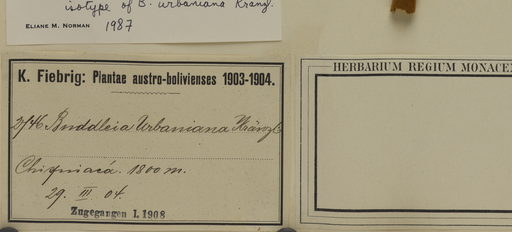 isotype of B. urbaniana Kränzl.
ELIANE M. NORMAN 1987
K. Fiebrig: Plantae austro-bolivienses 1903-1904.
2746 Buddleia Urbaniana Kränzl
Chiquiacá. 1800 m.
29. III. 04.
Zugegangen I. 1908
HERBARIUM REGIUM MONACEN